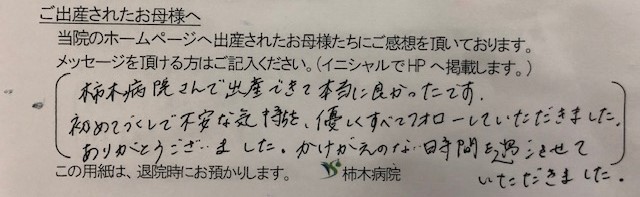 ご出産されたお母様へ
当院のホームページへ出産されたお母様たちにご感想を頂いております。
メッセージを頂ける方はご記入ください。(イニシャルでHPへ掲載します。)
柿木病院さんで出産できて本当に良かったです。
初めてづくしで不安な気持を、優しくすべてフォローしていただきました。
ありがとうございました。かけがえのない時間を過ごさせて
いただきました。
この用紙は、退院時にお預かりします。 柿木病院